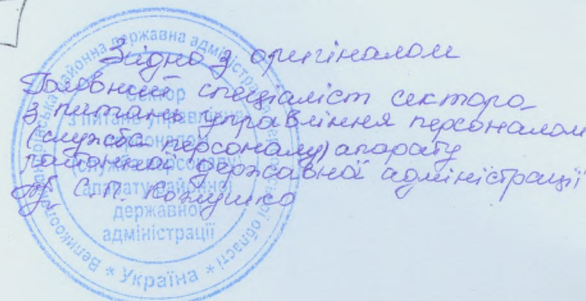 Згідно з оригіналом
Головний спеціаліст сектора
з питань управління персоналом
(служба персоналу) апарату
районної державної адміністрації
С.П. Кожушко
районна державна адміністрація
області
Сектор
з питань управління
персоналом
(служба персоналу)
апарату районної
державної
адміністрації
* Україна *